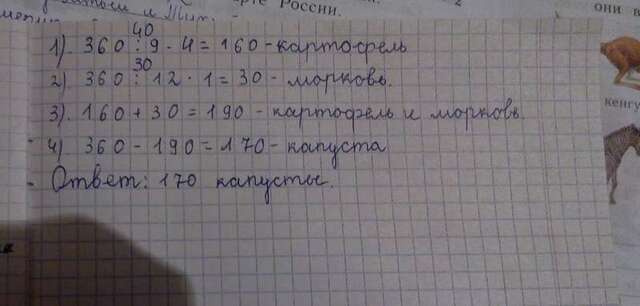 рте России.
они в
40
1). 360 : 9 · 4 = 160 - картофель
30
2). 360 : 12 · 1 = 30 - морковь.
3). 160 + 30 = 190 - картофель и морковь.
кенгу
4) 360 - 190 = 170 - капуста
Ответ: 170 капусты.